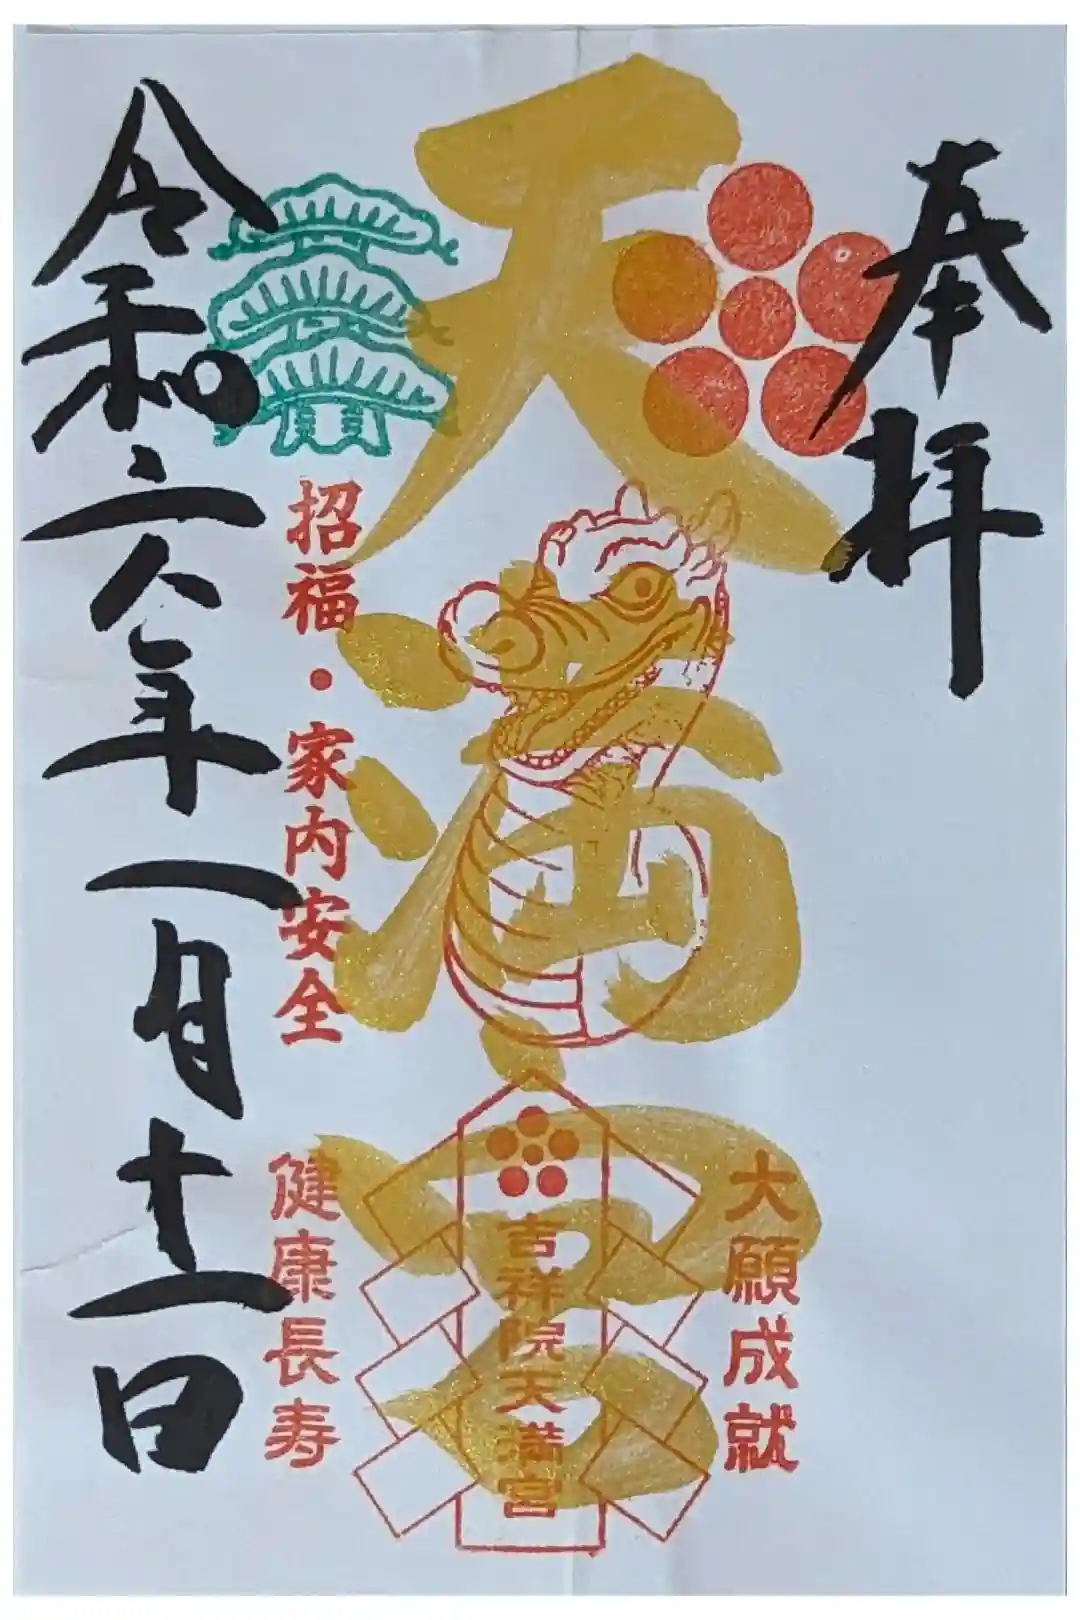 奉拝
大願成就
天満宮
吉祥院天満宮
招福・家内安全
健康長寿
令和六年一月十一日